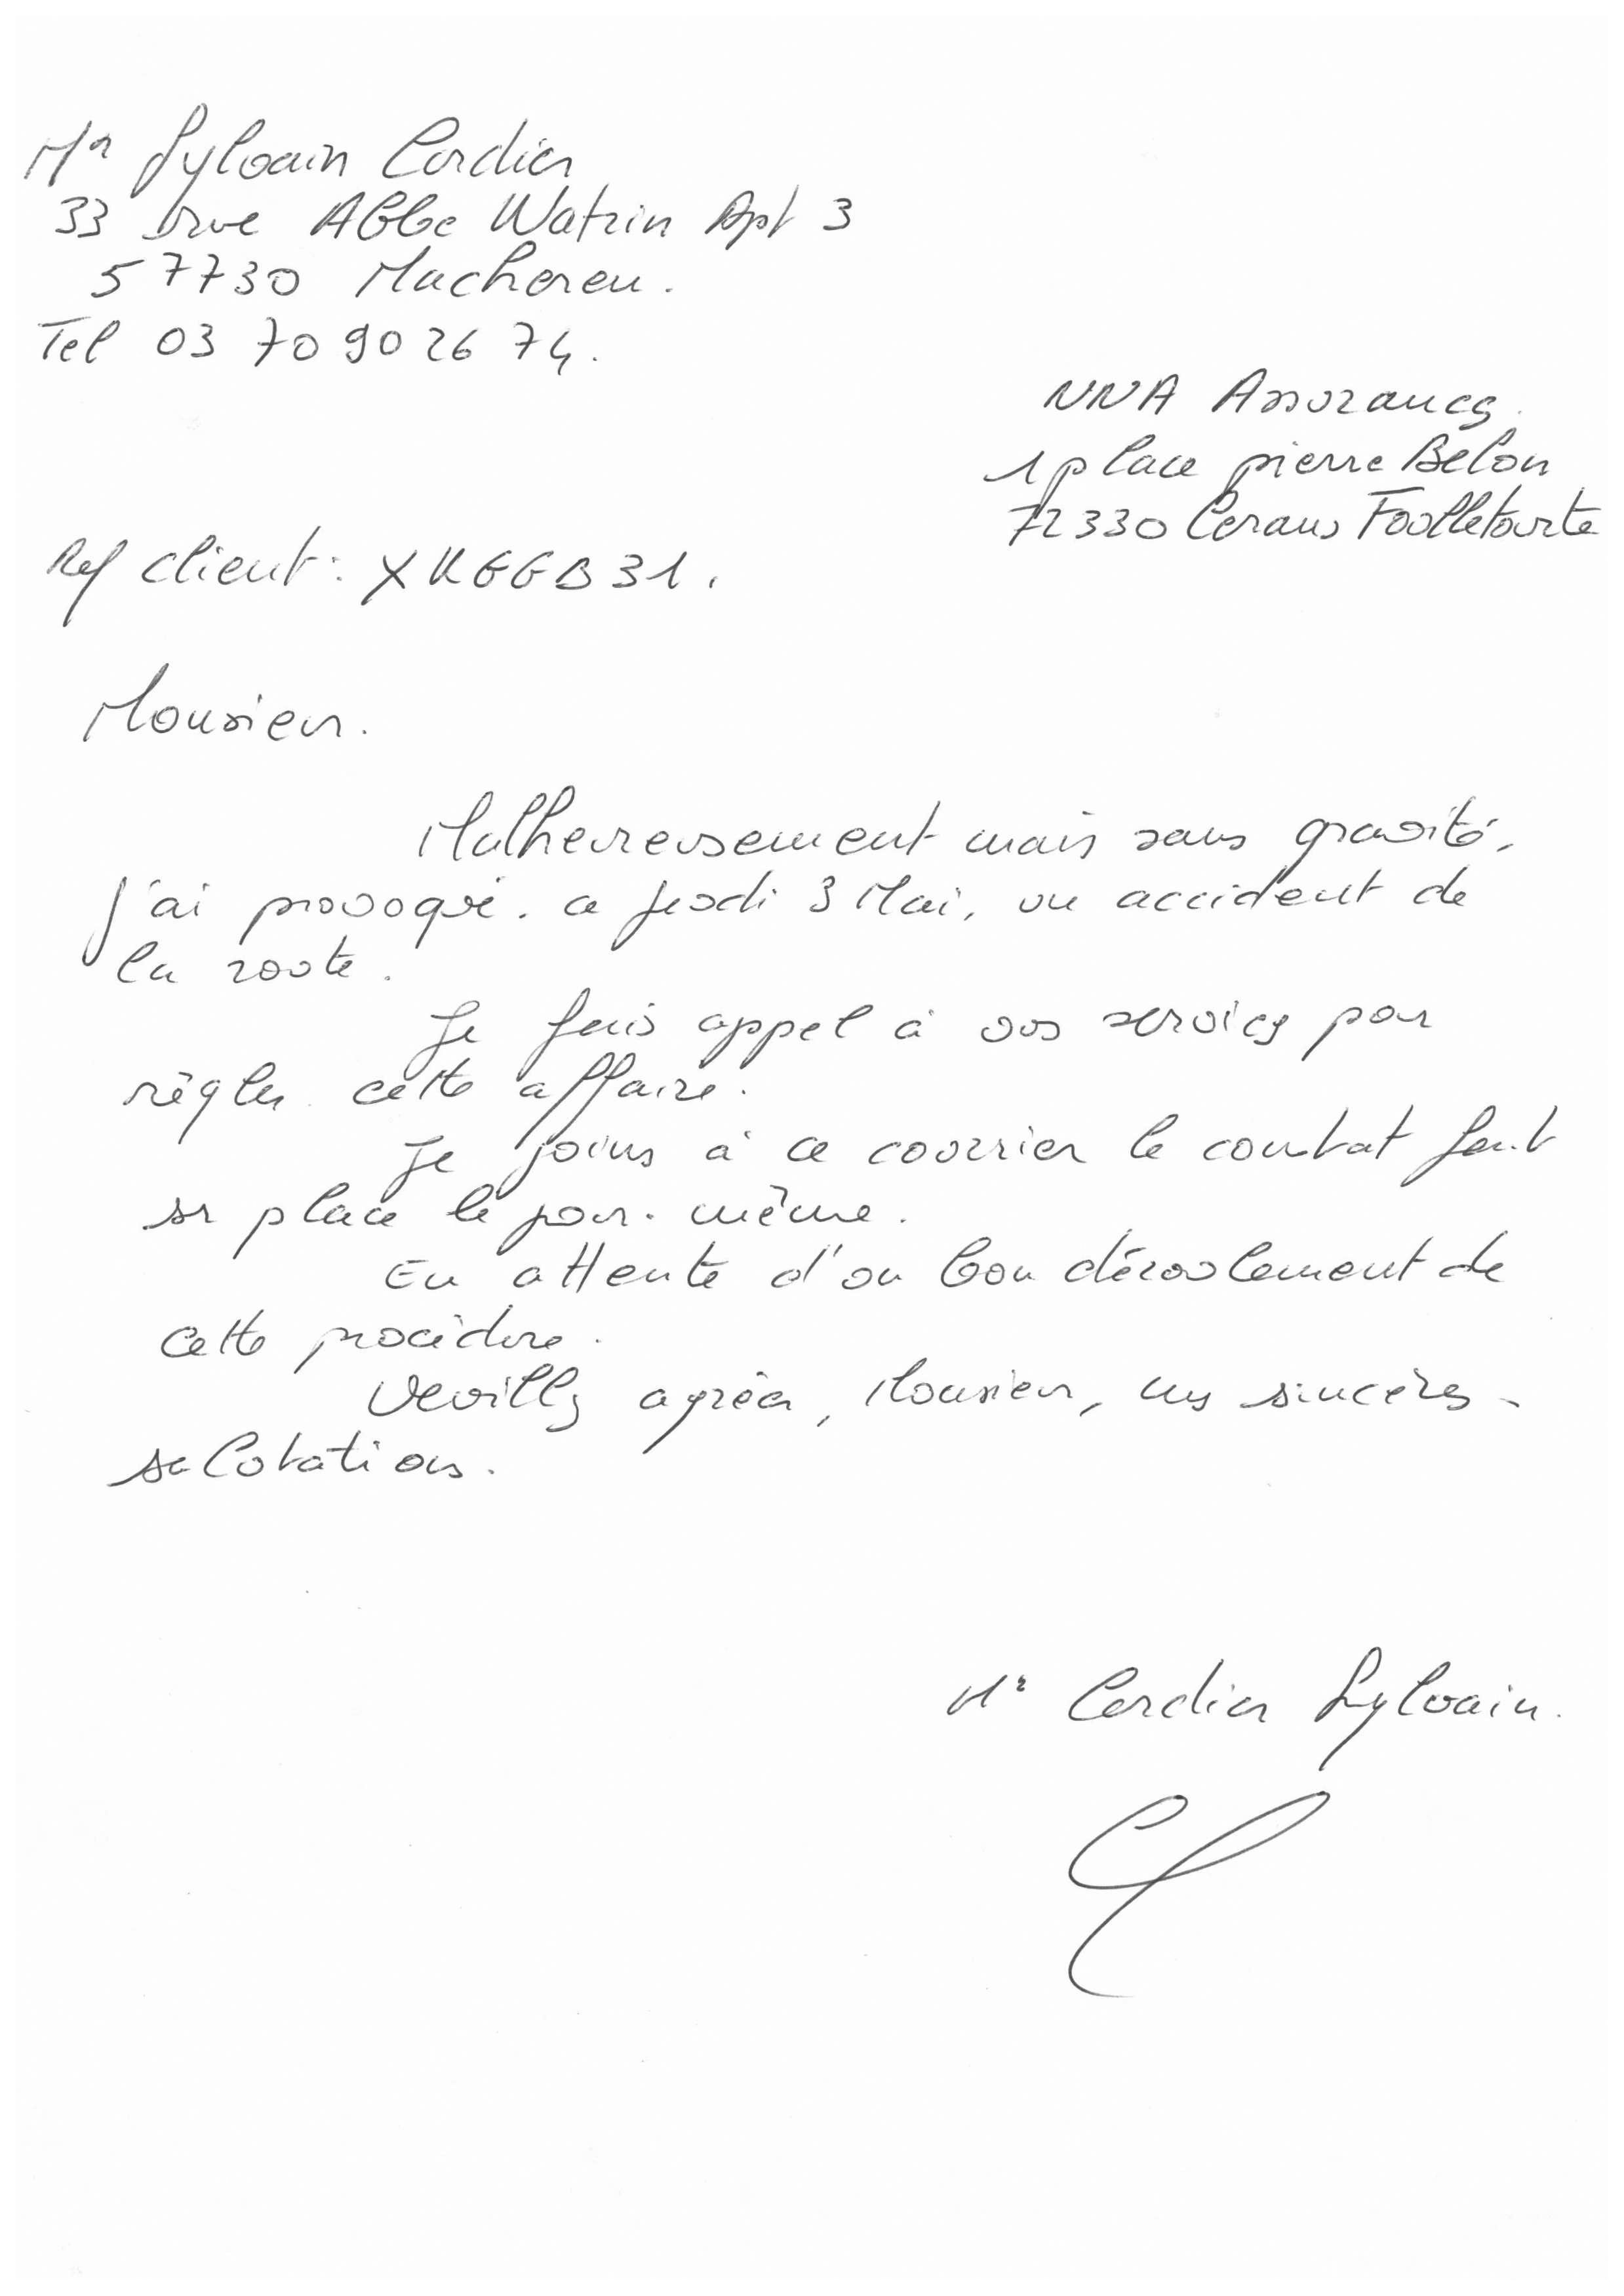 Mr Sylvain Cordier
33 rue Abbe Watrin Apt 3
57730 Macheren.
Tel 03 70 90 26 74.
NNA Assurances.
1 place pierre Belon
72330 Cerans Foulletourte
Ref client : XKGGB31.
Monsieur.
Malheureusement mais sans gravité,
j'ai provoqué. ce jeudi 3 Mai, un accident de
la route.
Je fais appel à vos services pour
règler cette affaire.
Je joins à ce courrier le constat fait
sr place le jour. même.
En attente d'un bon déroulement de
cette procédure.
Veuillez agréer, Monsieur, mes sincères
salutations.
Mr Cordier Sylvain.